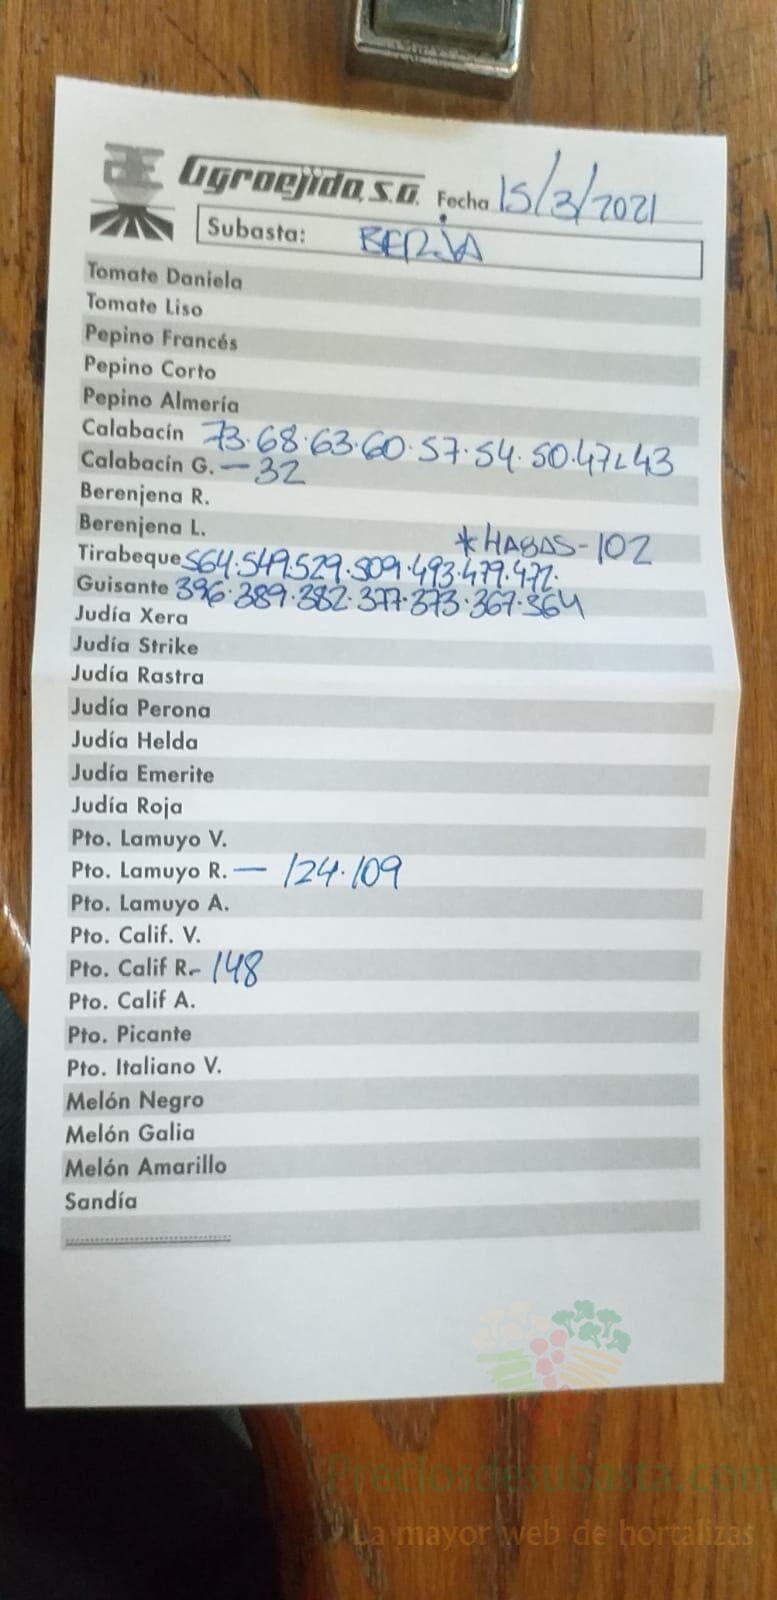 Agroejido, S.A. Fecha 15/3/2021
Subasta: BERJA
Tomate Daniela
Tomate Liso
Pepino Francés
Pepino Corto
Pepino Almería
Calabacín 73·68·63·60·57·54·50·47·43
Calabacín G. — 32
Berenjena R.
Berenjena L. *HABAS-102
Tirabeque 564·549·529·509·493·479·472·
Guisante 396·389·382·377·373·367·364
Judía Xera
Judía Strike
Judía Rastra
Judía Perona
Judía Helda
Judía Emerite
Judía Roja
Pto. Lamuyo V.
Pto. Lamuyo R. — 124·109
Pto. Lamuyo A.
Pto. Calif. V.
Pto. Calif R.- 148
Pto. Calif A.
Pto. Picante
Pto. Italiano V.
Melón Negro
Melón Galia
Melón Amarillo
Sandía
Preciosdesubasta.com
La mayor web de hortalizas